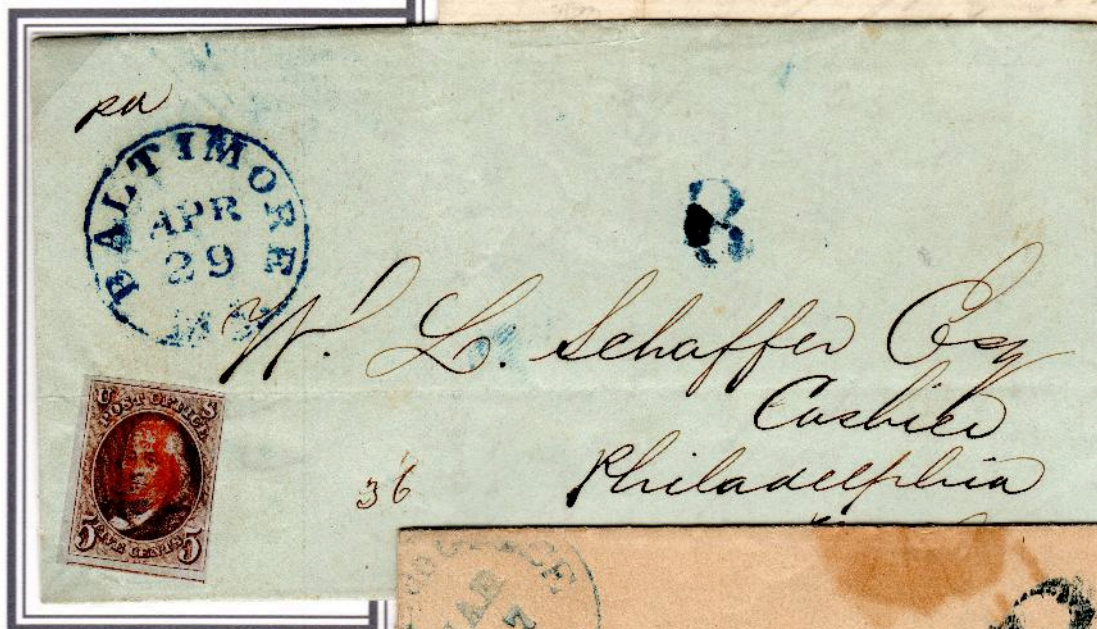 pd
BALTIMORE
APR
29
W. L. Schaffer Esq
Cashier
Philadelphia
36
U S
POST OFFICE
5 FIVE CENTS 5